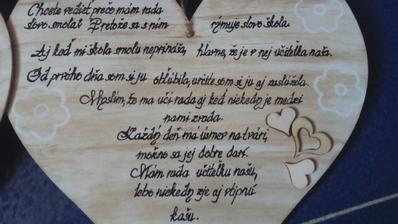 Chcete vedieť prečo mám rada
slovo smola? Pretože sa s ním rýmuje slovo škola.
Aj keď mi škola smolu neprináša, hlavne, že je v nej učiteľka naša.
Od prvého dňa som si ju obľúbila, určite som si ju aj zaslúžila.
Myslím, že ma učí rada aj keď niekedy je medzi
nami zvada.
Každý deň má úsmev na tvári,
možno sa jej dobre darí.
Mám rada učiteľku našu,
lebo niekedy zje aj vtipnú
kašu.